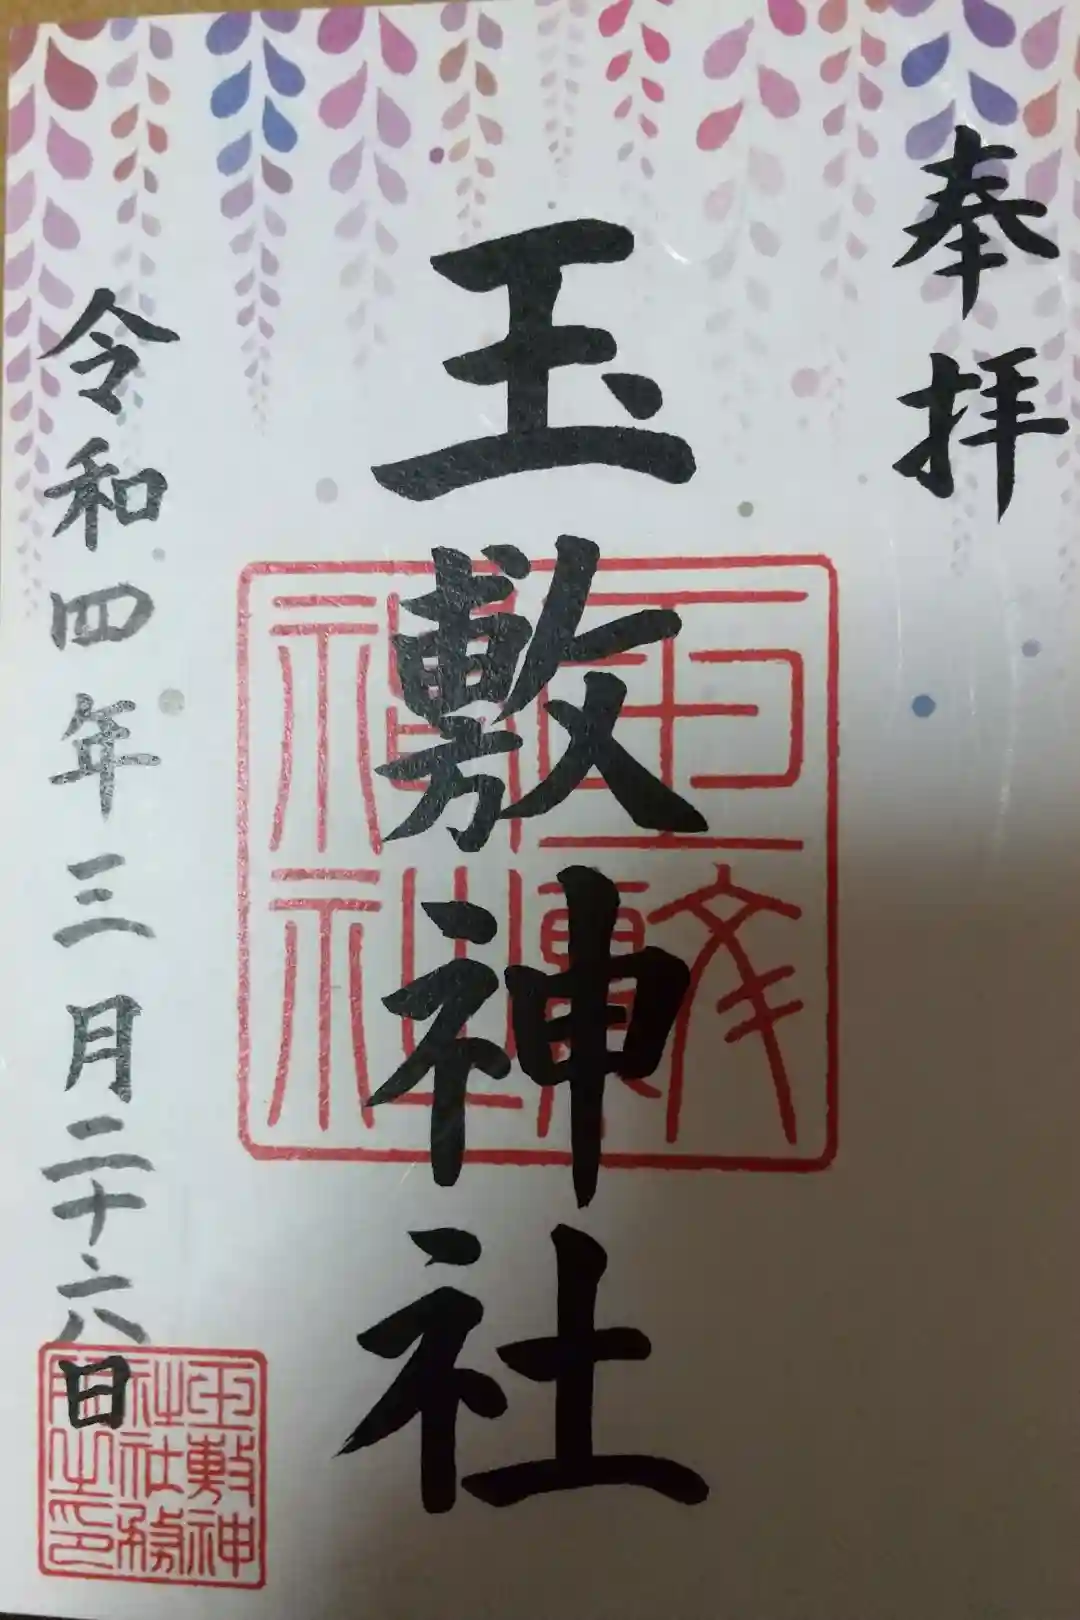 奉拝
玉敷神社
玉敷神社
令和四年三月二十六日
玉敷神社社務所之印